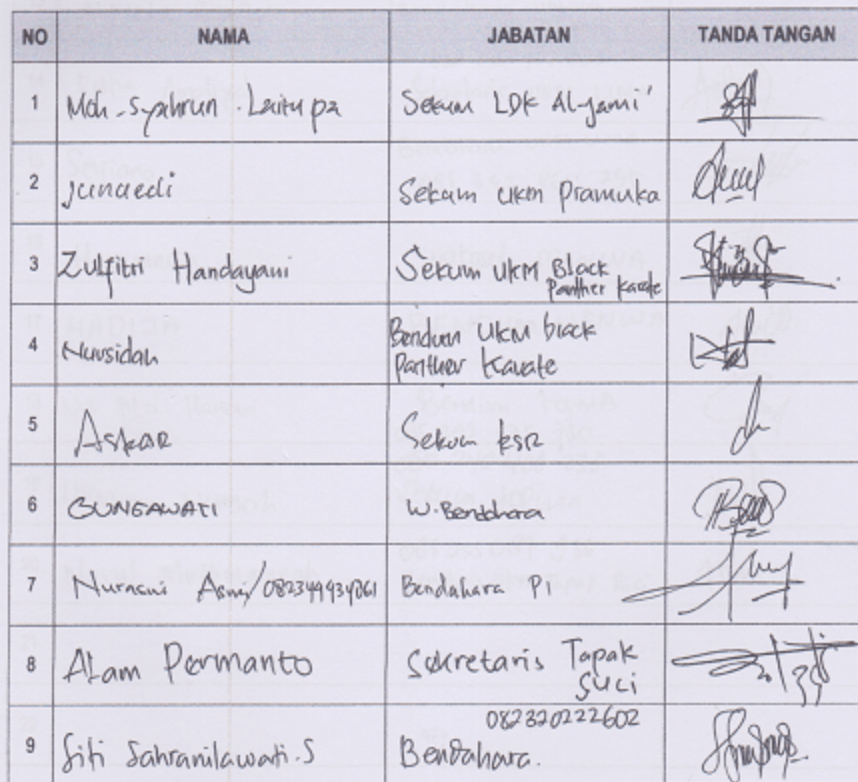 NO NAMA JABATAN TANDA TANGAN
1 Moh. Syahrun. Laitupa Sekum LDK Al-Jami'
2 Junaedi Sekum UKM Pramuka
3 Zulfitri Handayani Sekum UKM Black
Panther Karate
4 Nursidah Bendum UKM black
Panther Karate
5 Askar Sekum KSR
6 BUNGAWATI W. Bendahara
7 Nurasmi Asmy/ Bendahara PI
8 Alam Permanto Sekretaris Tapak
Suci
9 Siti Sahranilawati.S 082320222602
Bendahara.